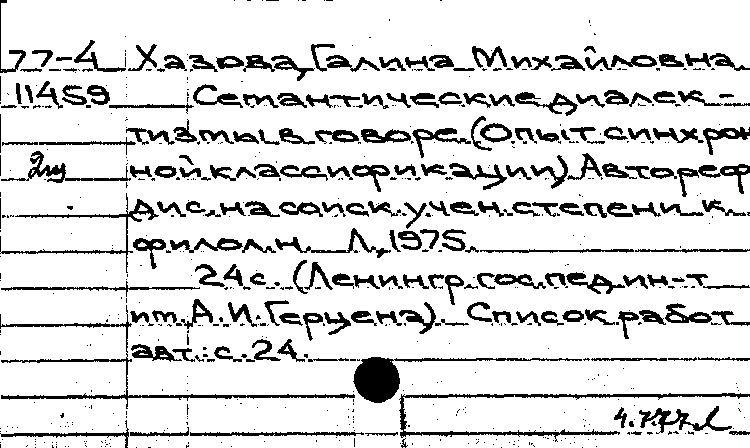 77-4 Хазова, Галина Михайловна.
11459 Семантические диалек-
тизмы в говоре. (Опыт синхрон
2щ ной классификации). Автореф
дис. на соиск. учен. степени к.
филол. н. Л., 1975.
24 с. (Ленингр. гос. пед. ин-т
им. А. И. Герцена). Список работ
авт.: с. 24.
4.7.77